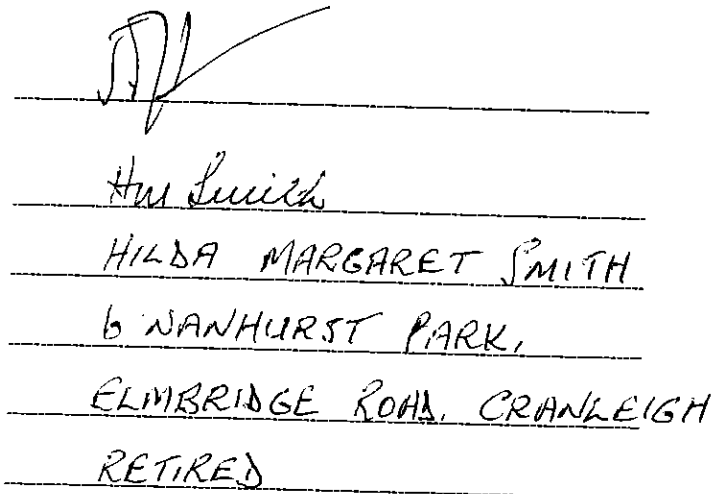 HM Smith
HILDA MARGARET SMITH
6 NANHURST PARK,
ELMBRIDGE ROAD. CRANLEIGH
RETIRED